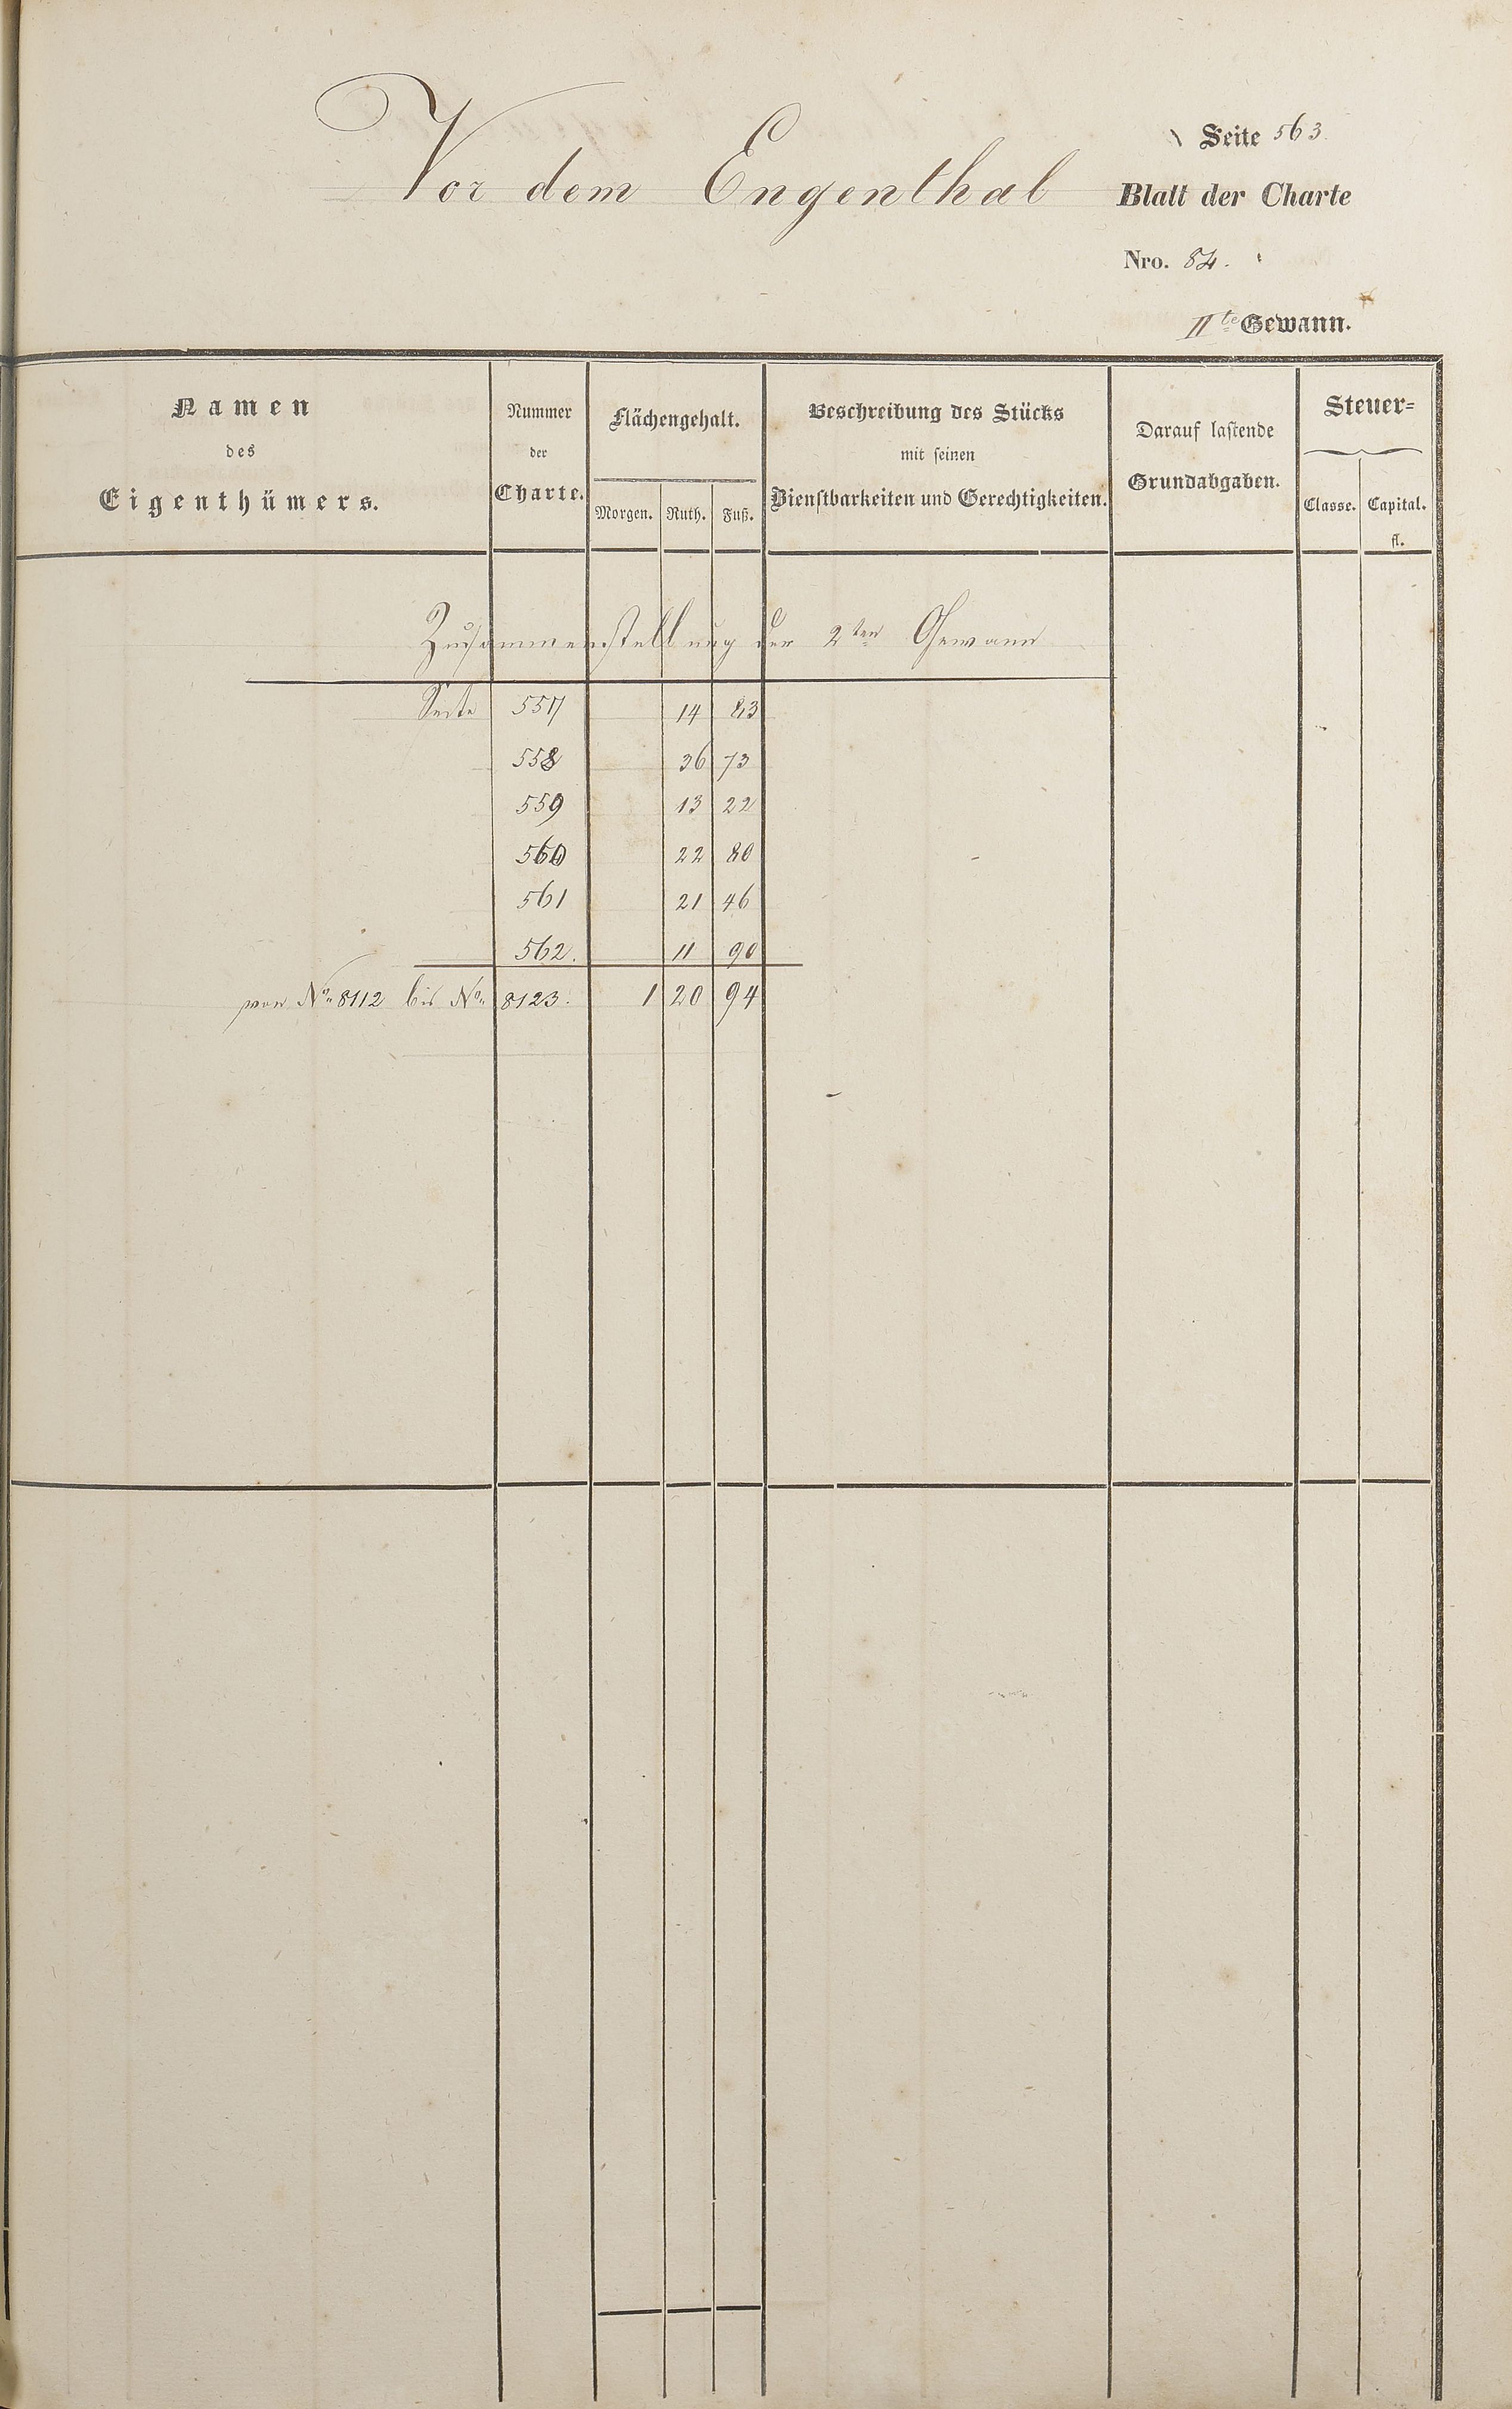 Seite 563
Vor dem Engenthal
Blatt der Charte
Nro. 84.
IIte Gewann.
Namen des Eigenthümers.
Nummer der Charte.
Flächengehalt.
Morgen. Ruth. Fuß.
Beschreibung des Stücks mit seinen Dienstbarkeiten und Gerechtigkeiten.
Darauf lastende Grundabgaben.
Steuer=
Classe. Capital. fl.
Zusammenstellung der 2ten Gewann
Seite 557 14 83
558 36 73
559 13 22
560 22 80
561 21 46
562. 11 90
von No. 8112 bis No. 8123. 1 20 94